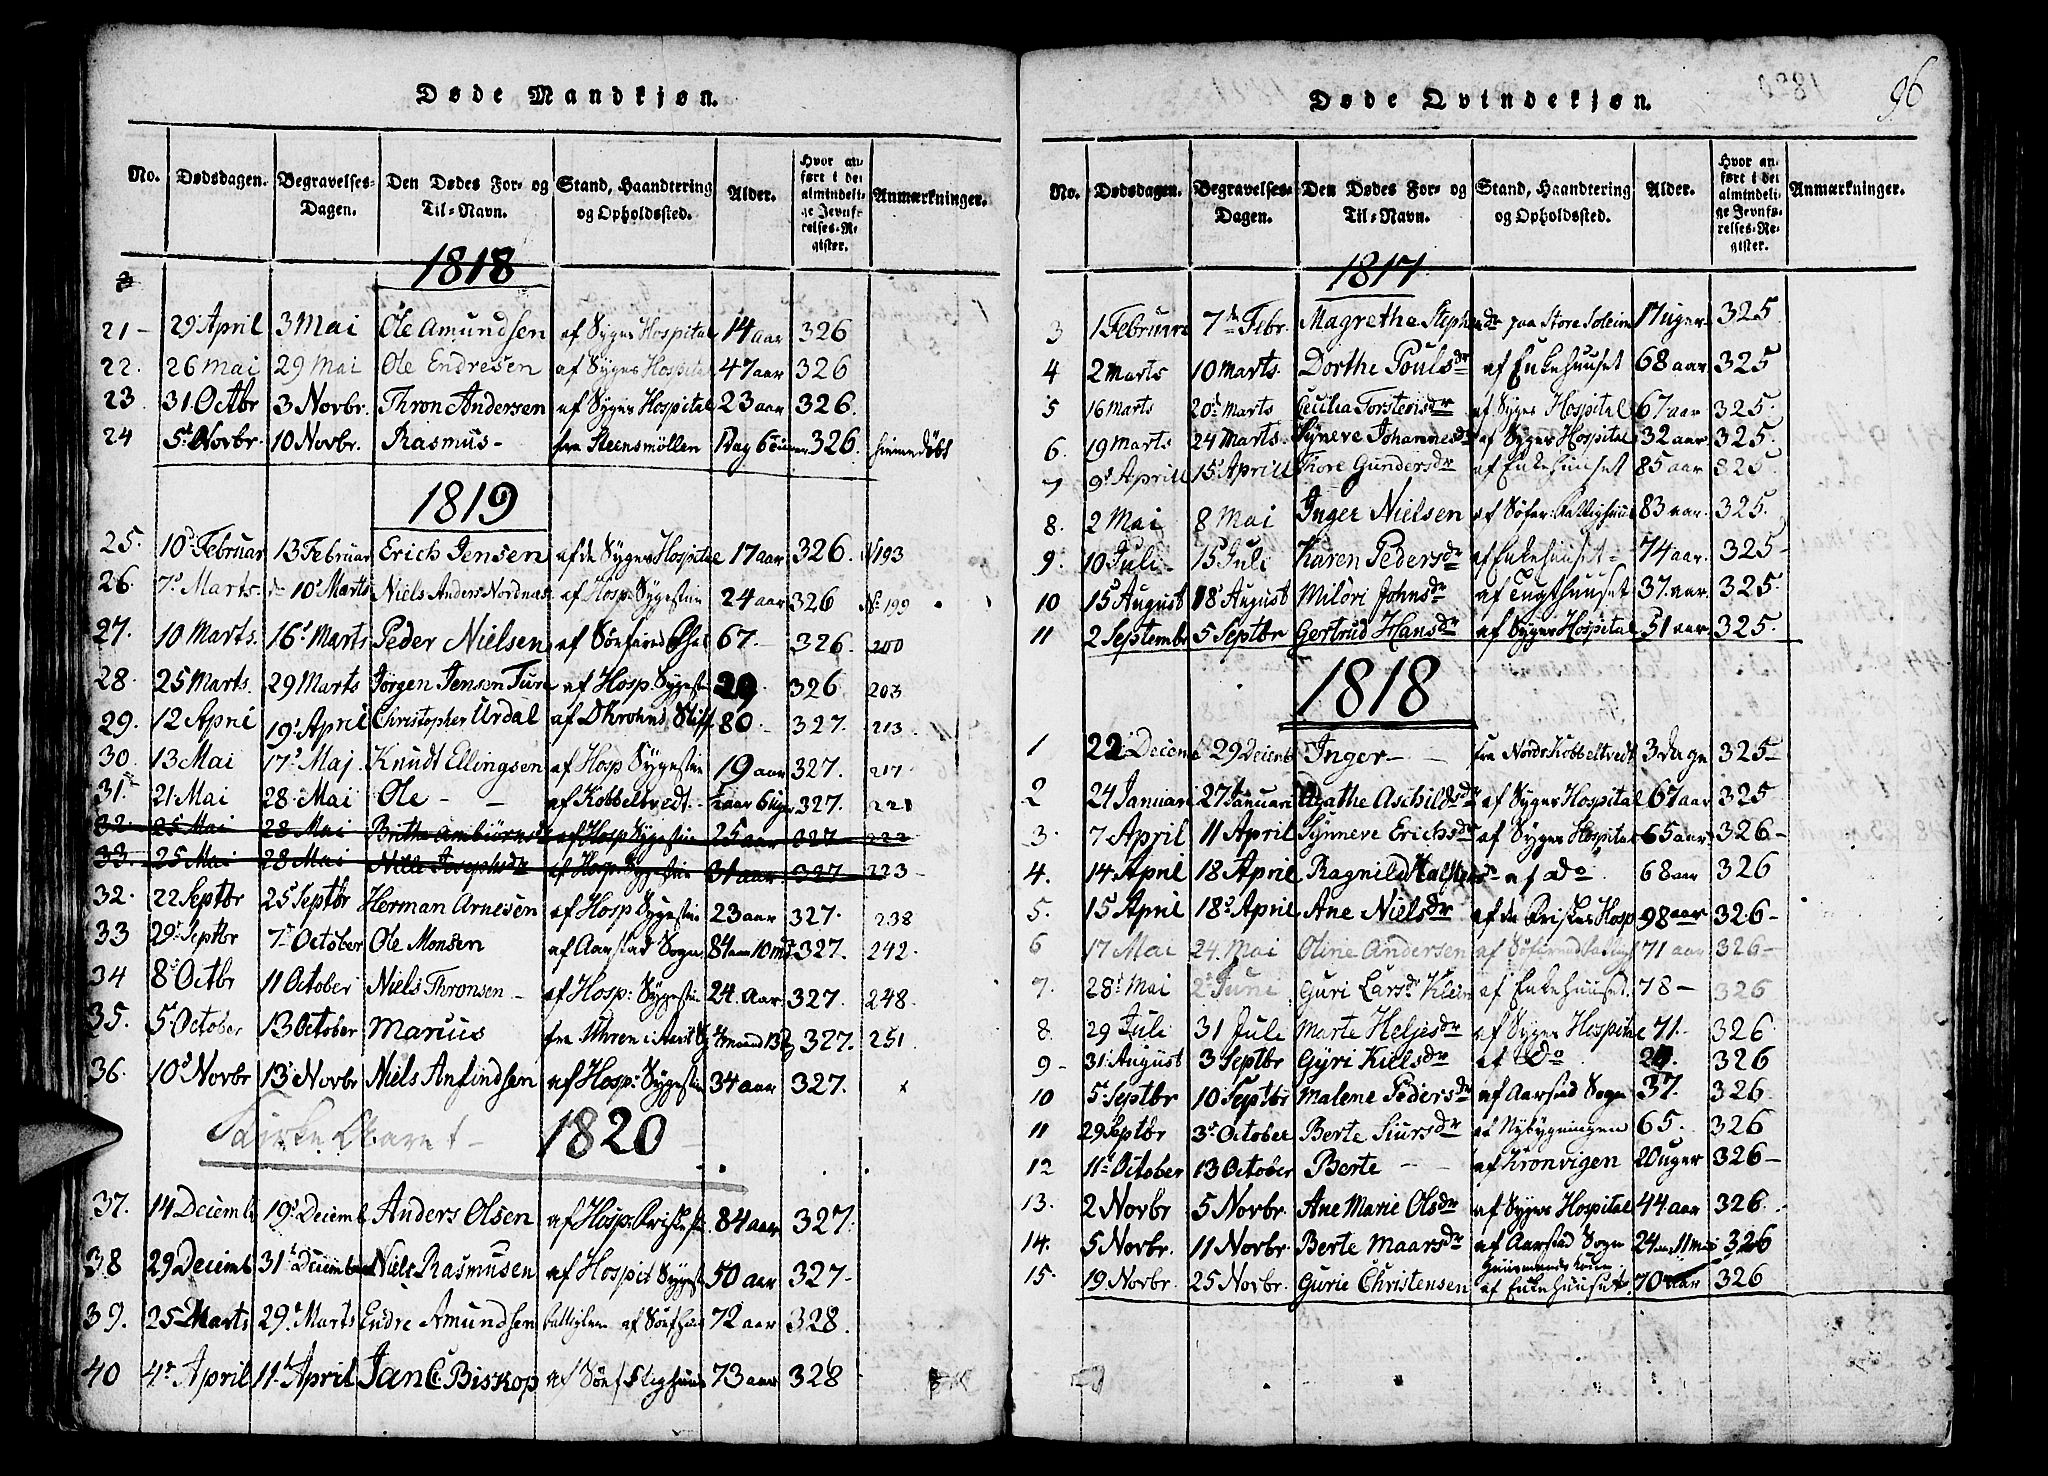 Døde Mandkjøn.
No. Dødsdagen. Begravelses-Dagen. Den Dødes For- og Til-Navn. Stand, Haandtering og Opholdssted. Alder. Hvor anført i det almindelige Jevnførelses-Register. Anmærkninger.
1818
21 - 29 April 3 Mai Ole Amundsen af Syges Hospital 14 aar 326
22. 26 Mai 29 Mai Ole Endresen af Syges Hospital 47 aar 326
23 31 Octbr 3 Novbr. Thron Andersen af Syges Hospital 23 aar 326.
24 5t Novbr. 10 Novbr. Rasmus - fra Steensmøllen 1 Dag 326. hiemedøbt
1819
25. 10d Februar 13 Februar Erich Jensen af de Syges Hospital 17 aar 326. N 193
26. 7d Marts. 10d Marts Niels Anders Nordnæs af Hosp: Sygestue 24 aar 326 No 199
27. 10 Marts. 16d Marts Peder Nielsen af 67. 326. 200
28. 25 Marts. 29 Marts Jørgen Jensen af Hosp Sygestue 29 326 203
29. 12 April 19d April Christopher Urdal af DKrohns Stift 80 - 327. 213
30. 13 Mai 17d Maj Knudt Ellingsen af Hosp Sygestue 19 aar 327. 217
31. 21 Mai 28 Mai Ole - - af Kobbeltvedt - 327. 221
32. 25 Mai 28 Mai Britha af Hosp Sygestue 25 aar 327 222
33. 25 Mai 28 Mai af Hosp: Sygestue 31 aar 327 223
32. 22 Septbr 25 Septbr Herman Arnesen af Hosp Sygestue 23 aar 327. 238
33 29d Septbr 7d October Ole Monsen af Aarstad Sogn 84 aar 10 md 327. 242.
34 8d Octbr 11 October Niels Thronsen - af Hosp: Sygestue 24. Aar 327. 248.
35. 5 October 13 October Marius fra Uhren i 327. 251
36. 10d Novbr 13d Novbr Niels Anfindsen af Hosp: Sygestue 34 aar 327. x
Kirke Aaret - 1820
37. 14 Decemb 19d Decemb Anders Olsen af Hosp: 84 aar 327.
38 29 Decemb 31t December Niels Rasmusen af Hospit Sygest 50 aar 327 -
39. 25 Marts 29d Marts Endre Amundsen af 72 aar 328.
40 4d April 11t April Jan C: Biskop af 73 aar 328
96
Døde Qvindekjøn.
No. Dødsdagen. Begravelses-Dagen. Den Dødes For- og Til-Navn. Stand, Haandtering og Opholdssted. Alder. Hvor anført i det almindelige Jevnførelses-Register. Anmærkninger.
1817
3 1 Februari 7de Febr. Magrethe Stephensdr paa Store Soleim 17 uger 325
4 2 Marts 10 Marts Dorthe Poulsdr af Enkehuuset 68 aar 325
5 16 Marts 20d Marts Cecilia Torstensdr af Syges Hospital 67 aar 325.
6. 19 Marts 24 Marts. Synneve Johannesdr af Syges Hospital 32 aar 325.
7 9d April 15d April Thore Gundersdr af Enkehuuset 85 aar 325
8. 2 Mai 8 Mai Inger Nielsen af Søfar: Fattighuus 83 aar. 325.
9. 10 Juli - 15 Juli Karen Pedersdr af Enkehuuset - 74 aar 325 -
10 15 August 18 August Milöri Johnsdr af Tugthuuset 37 aar 325.
11 2 Septembr 5 Septbr Gertrud Hansdr af Syges Hospital 51 aar 325.
1818
1 22 Decemb 29 Decemb Inger - - fra Nordr Kobbeltvedt 3 dage 325 -
2 24 Januari 27 Januari Agathe Aschildsdr af Syges Hospital 67 aar 325
3. 7 April 11 April Synneve Erichsdr af Syges Hospital 65 aar 326 -
4. 14 April 18 April Ragnild af do 68 aar 326
5. 15 April 18d April Ane Nielsdr af de Hosp 98 aar 326 -
6 17 Mai 24. Mai Oline Andersen af 71 aar 326 -
7. 28d Mai 2d Juni Guri Larsdr Klein af Enkehuuset. 78 - 326
8. 29 Juli 31 Jule Marte Heljesdr af Syges Hospital 71. 326.
9 - 31. August 3 Septbr Gyri Kielsdr af do 326
10 5d Septbr 10 Septbr Malene Pedersdr af Aarstad Sogn 37. 326.
11 29 Septbr 3d October Berte Siursdr Nybygningen 65. 326
12 11t October 13 October Berte - - af Kronvigen 20 uger 326 -
13. 2 Novbr 5 Novbr. Ane Marie Olsdr af Syges Hospital 44 aar 326.
14. 5 Novbr. 11 Novbr. Berte Maarsdr af Aarstad Sogn 24 aar 11 md 326
15. 19. Novbr. 25 Novbr. Gurie Christensen af Enkehuuset 70 aar 326